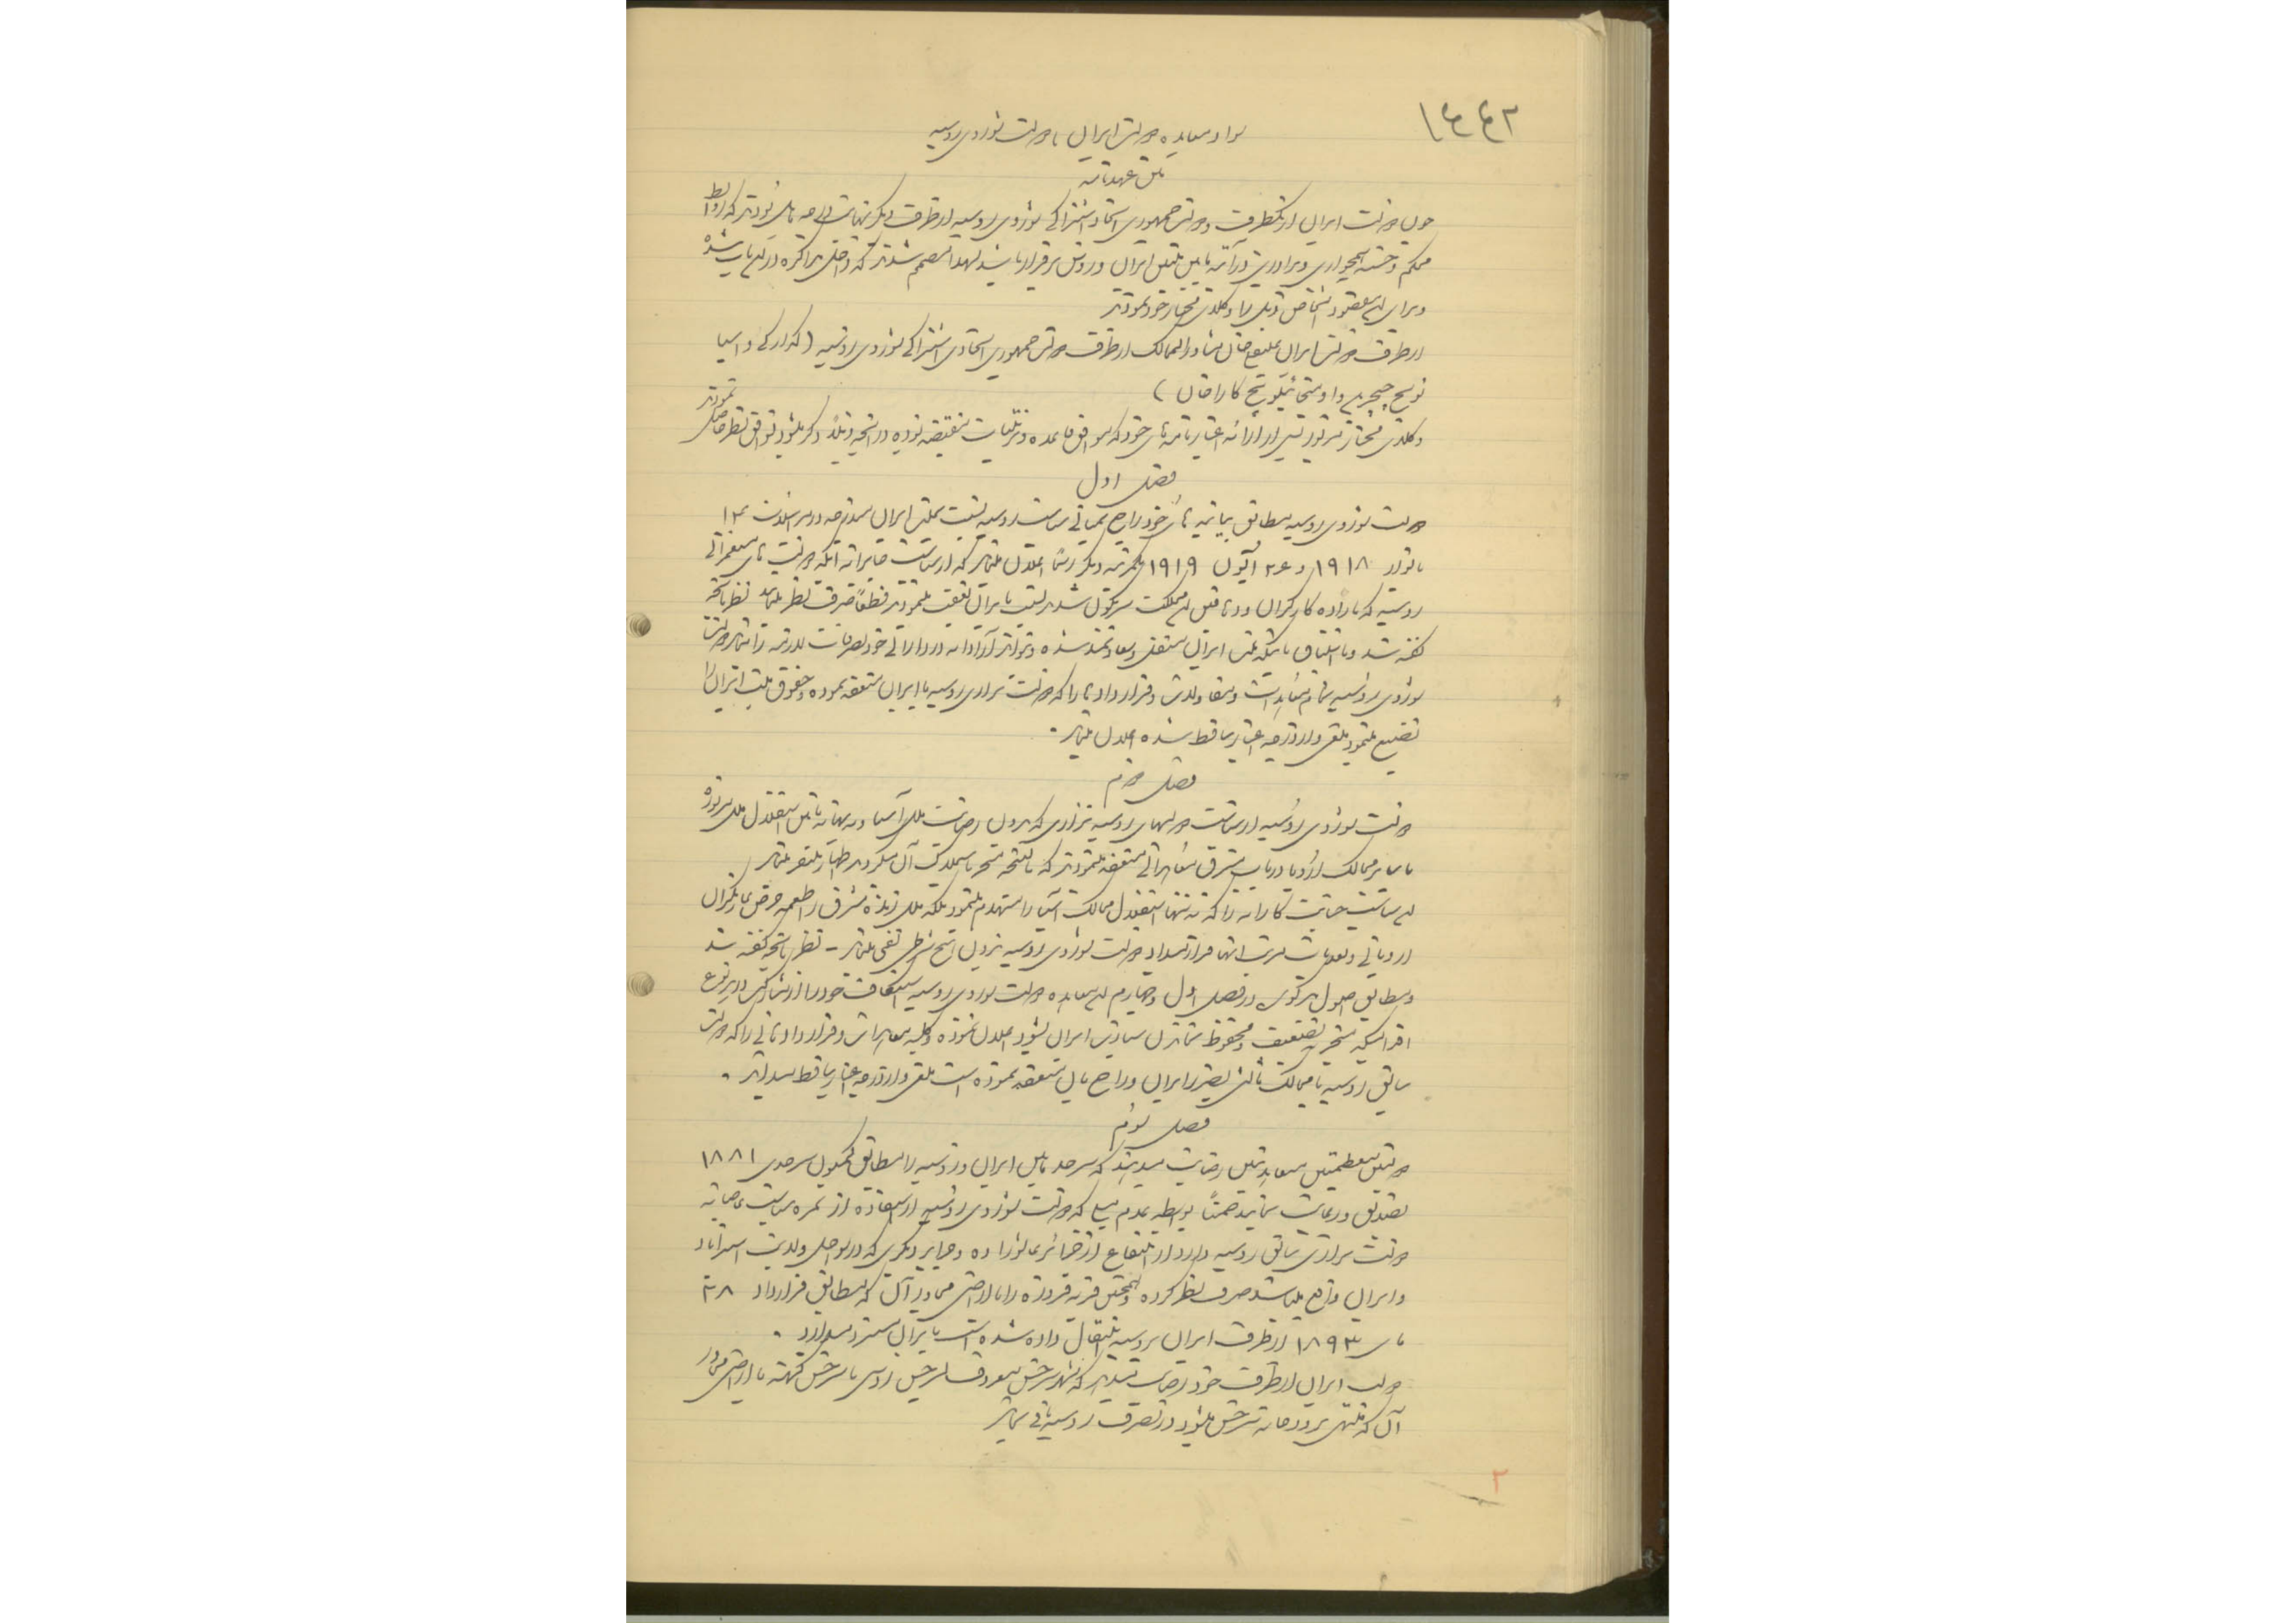 ۱۴۴۲
سواد معاهده دولت ایران با دولت شوروی روسیه
متن عهدنامه
چون دولت ایران از یکطرف و دولت جمهوری اتحاد اشتراکی شوروی روسیه از طرف دیگر نهایت درجه مایل بودند که روابط
محکم و حسنه همجواری و برادری در آتیه مابین ملتین ایران و روس برقرار باشد لهذا مصمم شدند که داخل مذاکره در این باب شده
و برای این مقصود اشخاص ذیل را وکلای مختار خود نمودند
از طرف دولت ایران علیقلی خان مشاورالممالک از طرف دولت جمهوری اتحادی اشتراکی شوروی روسیه (گئورگی واسیلیا
نویچ چیچرین و لومیخائیلویچ کاراخان)
وکلای مختار مزبور پس از ارائه اعتبارنامه های خود که موافق قاعده و ترتیبات مقتضیه بوده در آنچه ذیلا ذکر میشود توافق نظر حاصل نمودند
فصل اول
دولت شوروی روسیه مطابق بیانیه های خود راجع به مبانی سیاست روسیه نسبت بملت ایران مندرجه در مراسلات ۱۴
یانوار ۱۹۱۸ و ۲۶ ایون ۱۹۱۹ یکمرتبه دیگر رسماً اعلان مینماید که از سیاست جابرانه که دولت های مستعمراتی
روسیه که باراده کارگران و دهاقین این مملکت سرنگون شدند نسبت بایران تعقیب مینمودند قطعاً صرف نظر مینماید نظر بآنچه
گفته شد و با اشتیاق باینکه ملت ایران مستقل و سعادتمند شده و بتواند آزادانه در دارائی خود تصرفات لازمه را بنماید دولت
شوروی روسیه تمام معاهدات و مقاولات و قراردادها را که دولت تزاری روسیه با ایران منعقد نموده و حقوق ملت ایران را
تضییع مینمود ملغی و از درجه اعتبار ساقط شده اعلان مینماید .
فصل دوم
دولت شوروی روسیه از سیاست دولتهای روسیه تزاری که بدون رضایت ملل آسیا و به بهانه تامین استقلال ملل مزبوره
با سایر ممالک اروپا در باب مشرق معاهداتی منعقد مینمودند که بالنتیجه منجر باستملاک آن میگردید اظهار تنفر مینماید
این سیاست جنایت کارانه را که نه تنها استقلال ممالک آسیا را منهدم مینمود بلکه ملل زنده شرق را طعمه حرص غارتگران
اروپائی و تعدیات مرتب آنها قرار میداد دولت شوروی روسیه بدون هیچ شرطی نفی مینماید - نظر بآنچه گفته شد
و مطابق اصول مذکوره در فصل اول و چهارم این معاهده دولت شوروی روسیه استنکاف خود را از مشارکت در هر نوع
اقداماتیکه منجر بتضعیف و محفوظ نماندن سیادت ایران بشود اعلان نموده و کلیه معاهدات و قراردادهائی را که دولت
سابق روسیه با ممالک ثالثی بضرر ایران و راجع بآن منعقد نموده است ملغی و از درجه اعتبار ساقط میداند .
فصل سوم
دولتین معظمتین متعاهدتین رضایت میدهند که سرحد مابین ایران و روسیه را مطابق کمیسیون سرحدی ۱۸۸۱
تصدیق و رعایت نمایند ضمناً بواسطه عدم میلی که دولت شوروی روسیه از استفاده از ثمره سیاست غاصبانه
دولت تزاری سابق روسیه دارد از انتفاع از جزائر عاشوراده و جزایر دیگری که در سواحل ولایت استراباد
و ایران واقع میباشد صرف نظر کرده و همچنین قریه فیروزه را با اراضی مجاور آن که مطابق قرارداد ۲۸
مای ۱۸۹۳ از طرف ایران بروسیه انتقال داده شده است بایران مسترد میدارد .
دولت ایران از طرف خود رضایت میدهد که شهر سرخس معروف بسرخس روس یا سرخس کهنه با اراضی مجاور
آن که منتهی برودخانه سرخس میشود در تصرف روسیه باقی بماند
۲